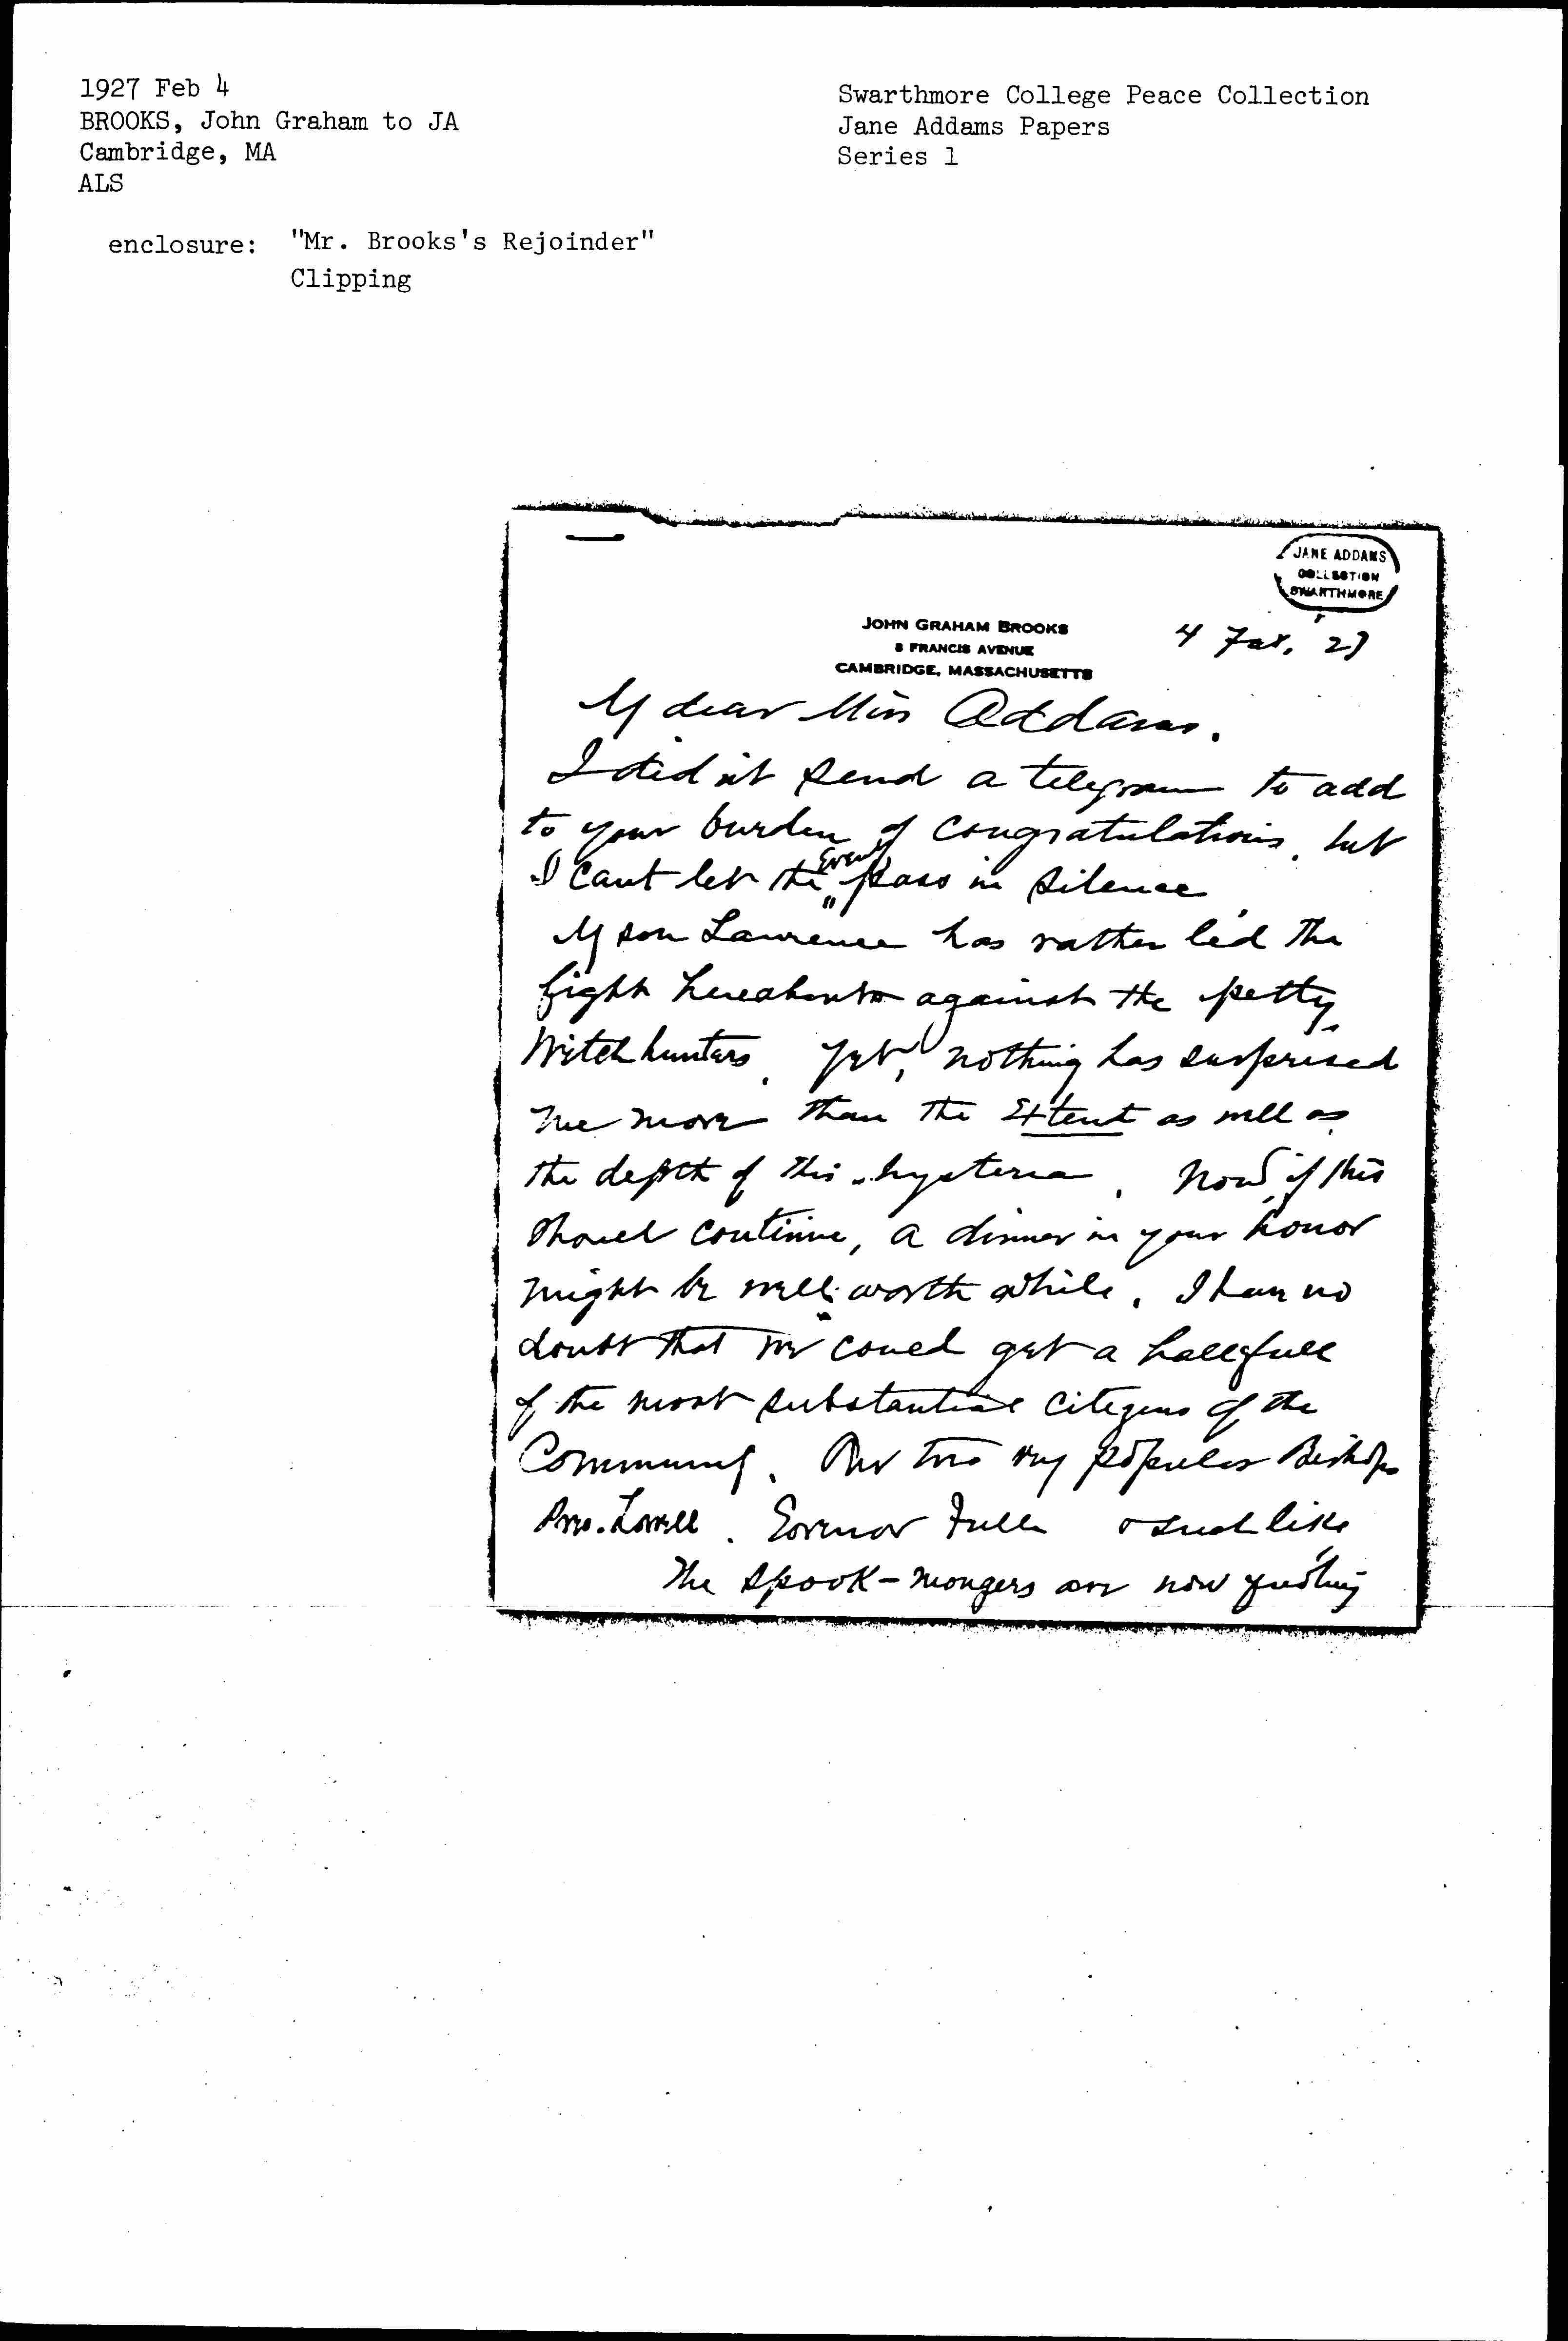 1927 Feb 4
BROOKS, John Graham to JA
Cambridge, MA
ALS
enclosure: "Mr. Brooks's Rejoinder"
Clipping
Swarthmore College Peace Collection
Jane Addams Papers
Series 1
JANE ADDAMS
COLLECTION
SWARTHMORE
JOHN GRAHAM BROOKS
8 FRANCIS AVENUE
CAMBRIDGE, MASSACHUSETTS
4 Feb. 27
My dear Miss Addams.
I did n't send a telegram to add
to your burden of congratulations, but
I cant let the event pass in silence
My son Lawrence has rather led the
fight hereabouts against the petty
Witch hunters. Yet, nothing has surprised
me more than the Extent as well as
the depth of this hysteria. Now, if this
should continue, a dinner in your honor
might be well worth while. I have no
doubt that we could get a hall full
of the most substantial citizens of the
Community. Our two very popular Bishops
Pres. Lowell. Governor Fuller & such like
The spook-mongers are now